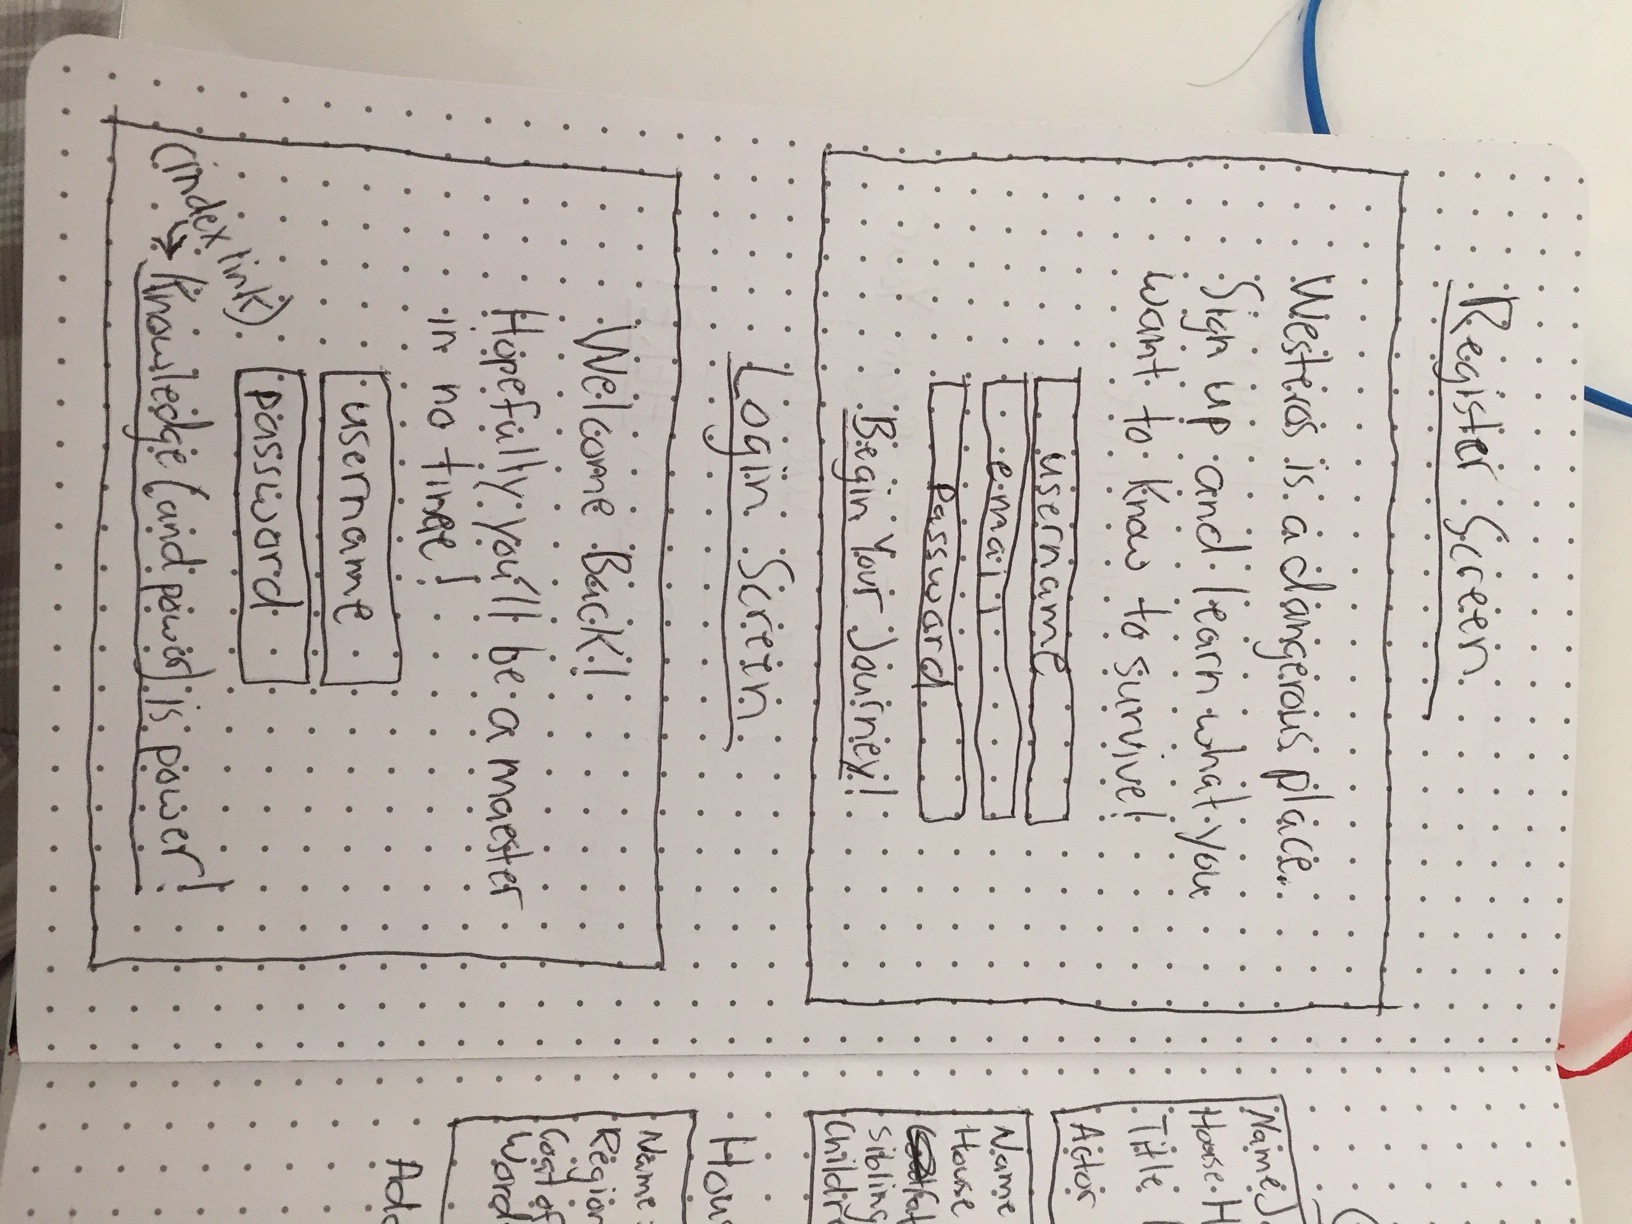 Register Screen
Westeros is a dangerous place.
Sign up and learn what you
want to know to survive!
username
email
password
Begin Your Journey!
Login Screen
Welcome Back!
Hopefully you'll be a maester
in no time!
username
password
(index link)
Knowledge (and power) is power!
Name
House
Title
Actor
Name
House
sibling
Childr
Hou
Name:
Region
Coat of
Word
Add